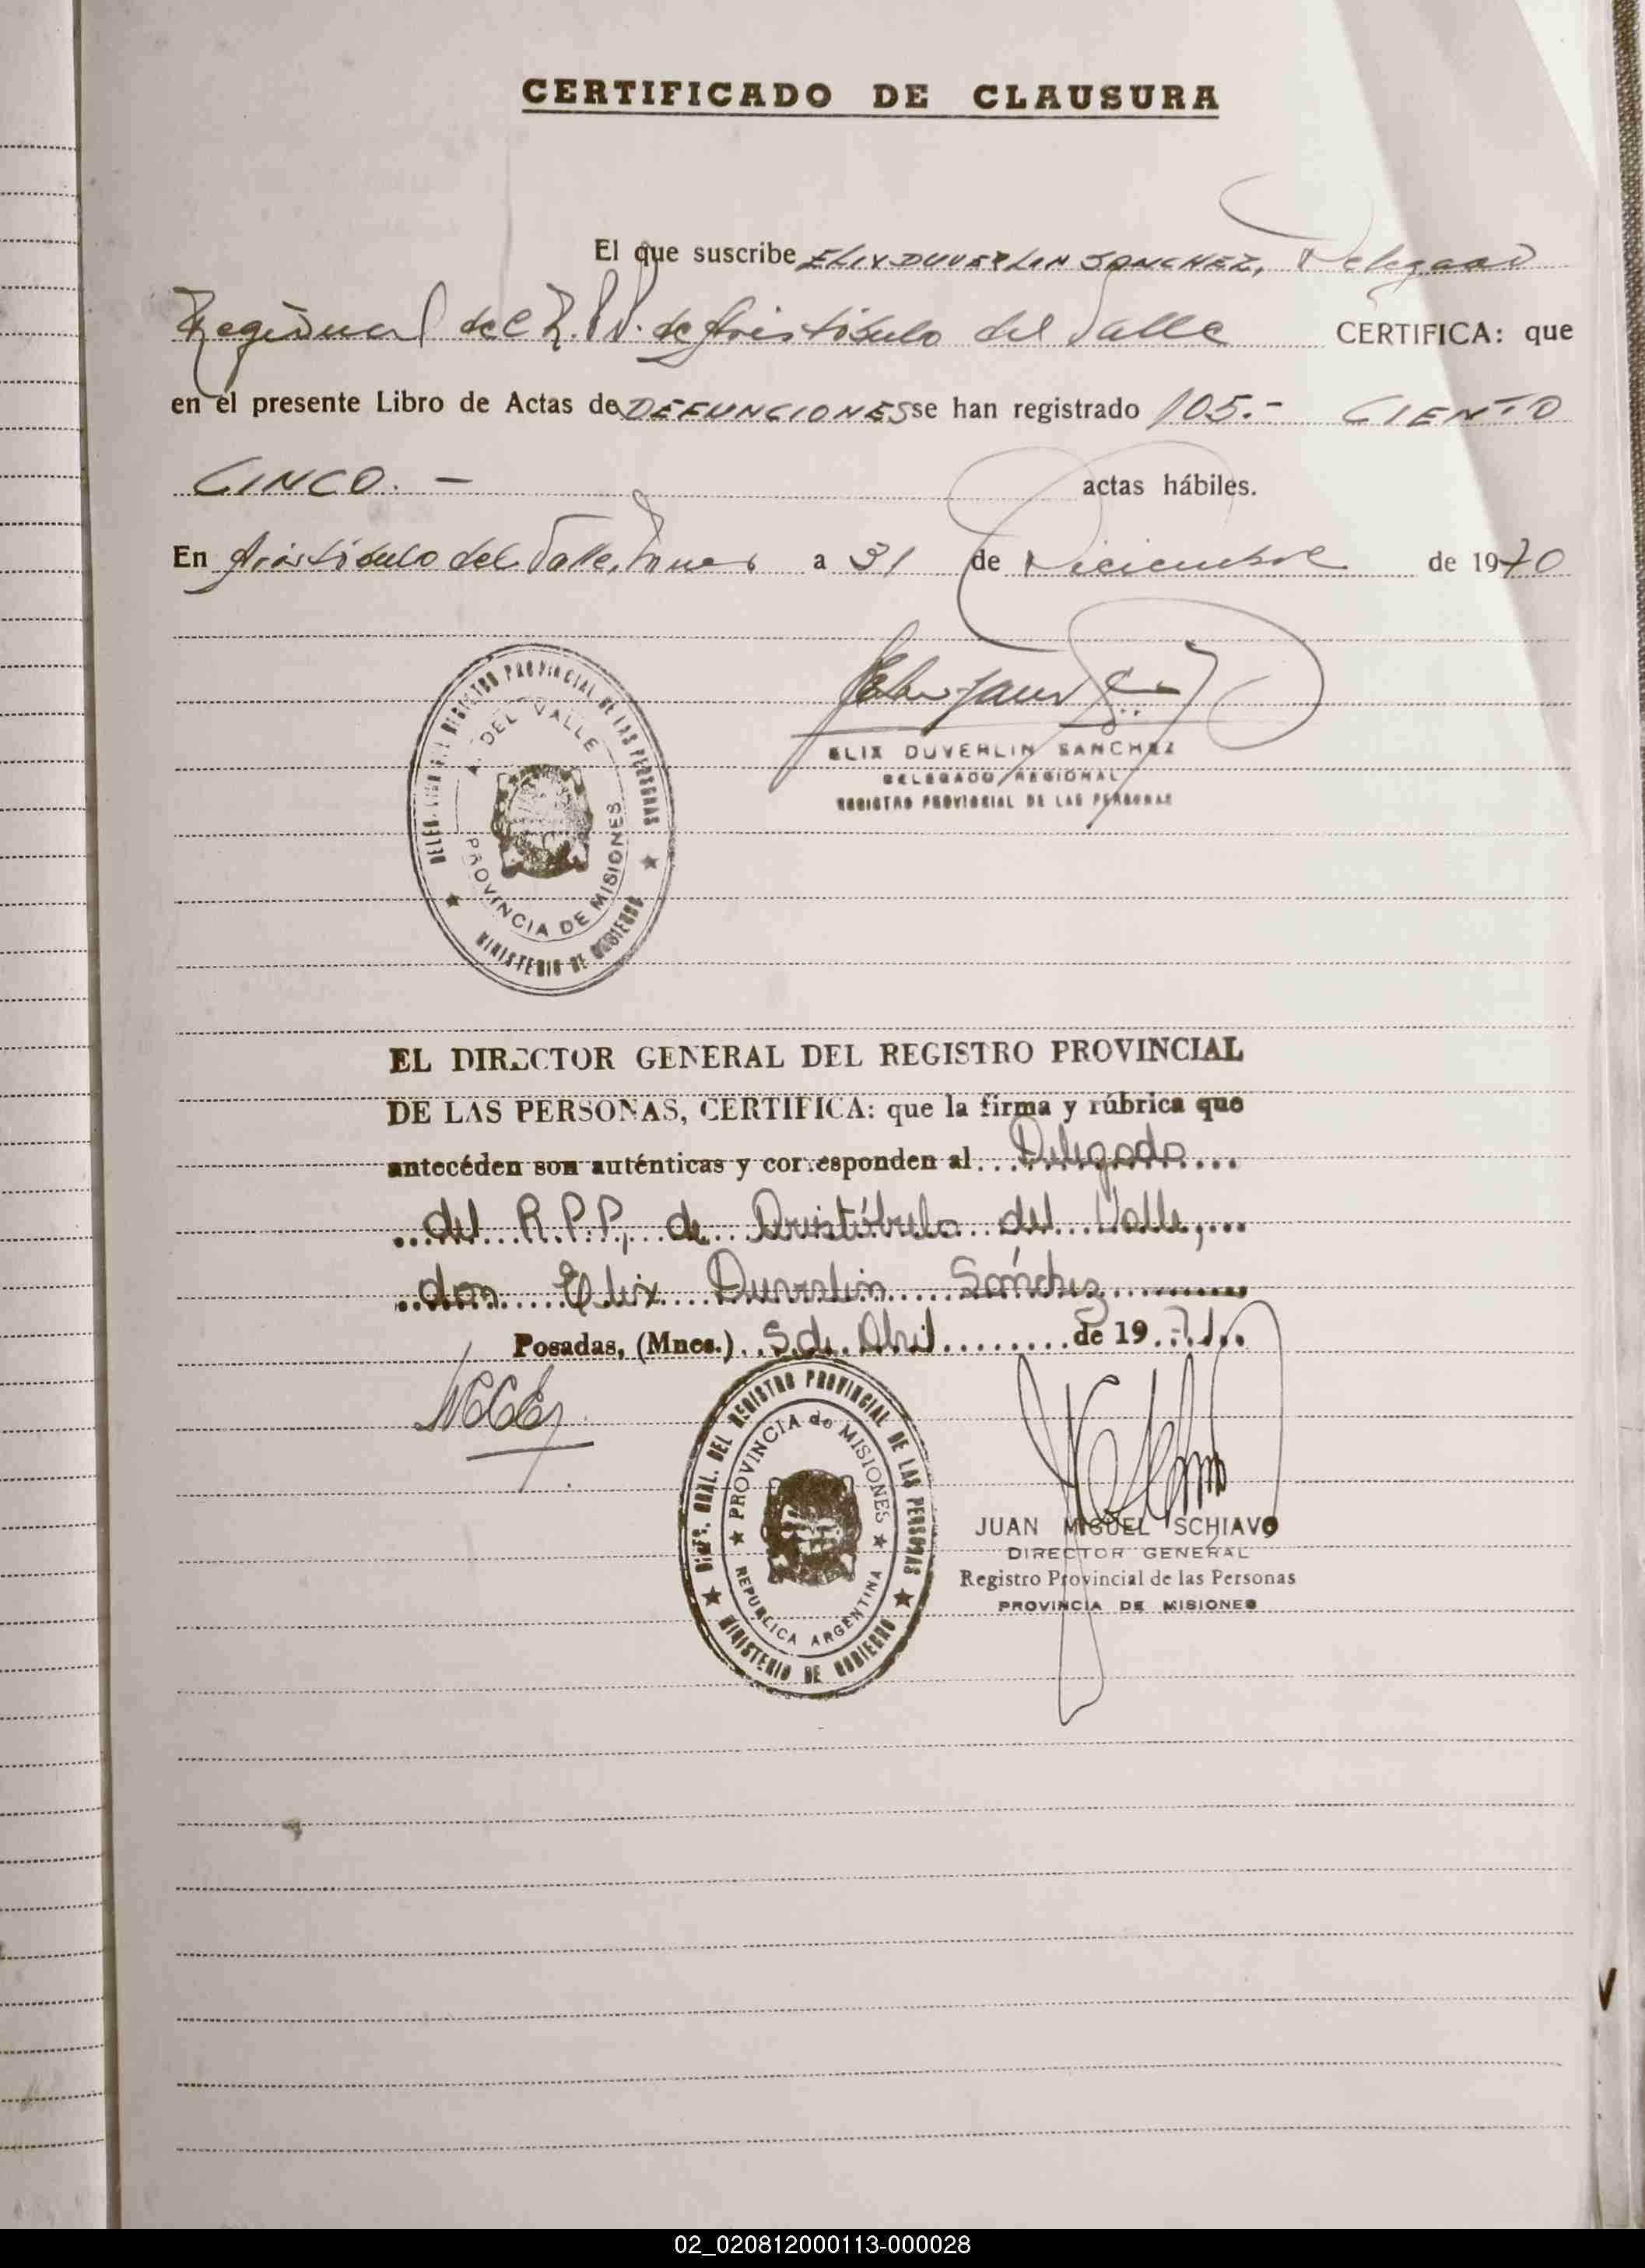 CERTIFICADO DE CLAUSURA
El que suscribe ELIX DUVERLIN SANCHEZ, Delegado
Regional del R.P.P. de Aristóbulo del Valle CERTIFICA: que
en el presente Libro de Actas de DEFUNCIONES se han registrado 105.- CIENTO
CINCO. - actas hábiles.
En Aristóbulo del Valle, Mnes a 31 de Diciembre de 1970
DEL REGISTRO PROVINCIAL DE LAS PERSONAS
A. DEL VALLE
PROVINCIA DE MISIONES
MINISTERIO DE GOBIERNO
ELIX DUVERLIN SANCHEZ
DELEGADO REGIONAL
REGISTRO PROVINCIAL DE LAS PERSONAS
EL DIRECTOR GENERAL DEL REGISTRO PROVINCIAL
DE LAS PERSONAS, CERTIFICA: que la firma y rúbrica que
antecéden son auténticas y corresponden al Delegado
del R.P.P, de Aristóbulo del Valle,
don Elix Duverlin Sánchez
Posadas, (Mnes.) 5 de Abril de 1971
DIREC. GRAL. DEL REGISTRO PROVINCIAL DE LAS PERSONAS
PROVINCIA de MISIONES
REPUBLICA ARGENTINA
MINISTERIO DE GOBIERNO
JUAN MIGUEL SCHIAVO
DIRECTOR GENERAL
Registro Provincial de las Personas
PROVINCIA DE MISIONES
02_020812000113-000028